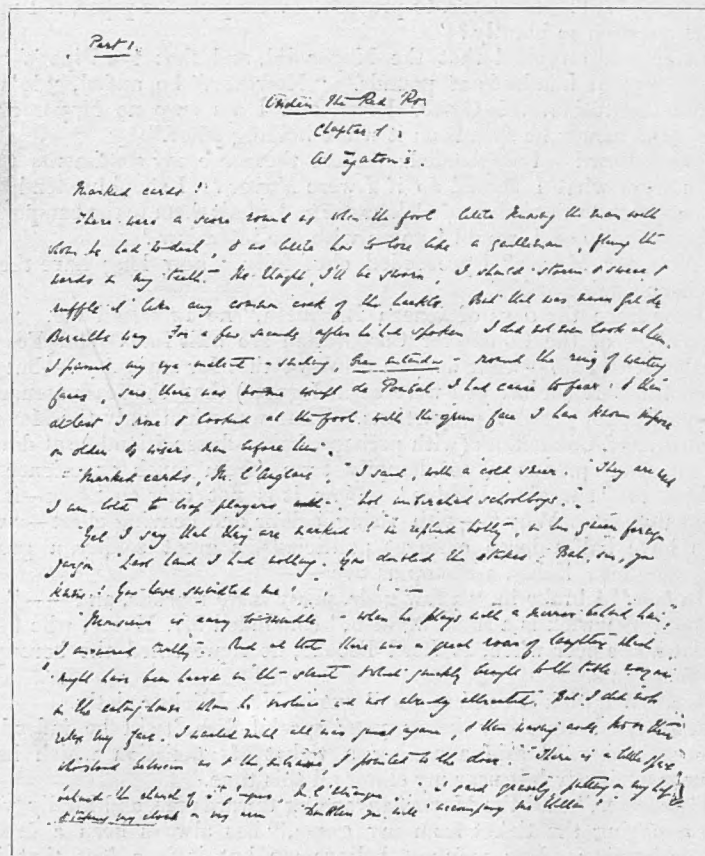 Part 1.
Under the Red Robe
Chapter 1:
At Zaton's
Marked cards!
There were a score round us when the fool little knowing the man with
whom he had to deal, & as little how to lose like a gentleman, flung the
words in my teeth. He thought, I'll be sworn, I should storm & swear &
ruffle it like any common cock of the hackle. But that was never Gil de
Berault's way. For a few seconds after he had spoken I did not even look at him.
I passed my eye instead - smiling, bien entendu - round the ring of waiting
faces, saw there was no one except de Pombal I had cause to fear; & then
at last I rose & looked at the fool with the grim face I have known impose
on older & wiser men before him.
"Marked cards, M. l'Anglais?" I said, with a cold sneer. "They are used
I am told to trap players - not unbirched schoolboys."
"Yet I say that they are marked!" he replied hotly in his queer foreign
jargon. "Last hand I had nothing. You doubled the stakes. Bah, sir, you
knew! You have swindled me!"
"Monsieur is easy to swindle - when he plays with a mirror behind him,"
I answered tartly. And at that there was a great roar of laughter which
might have been heard in the street & which quickly brought to the table everyone
in the eating-house whom his violence had not already attracted. But I did not
relax my face. I waited until all was quiet again, & then waving aside two or three
who stood between us & the entrance, I pointed to the door. "There is a little space
behind the church of St Jacques, M. l'étranger," I said gravely, putting on my hat &
taking my cloak on my arm. "Doubtless you will accompany me thither?"